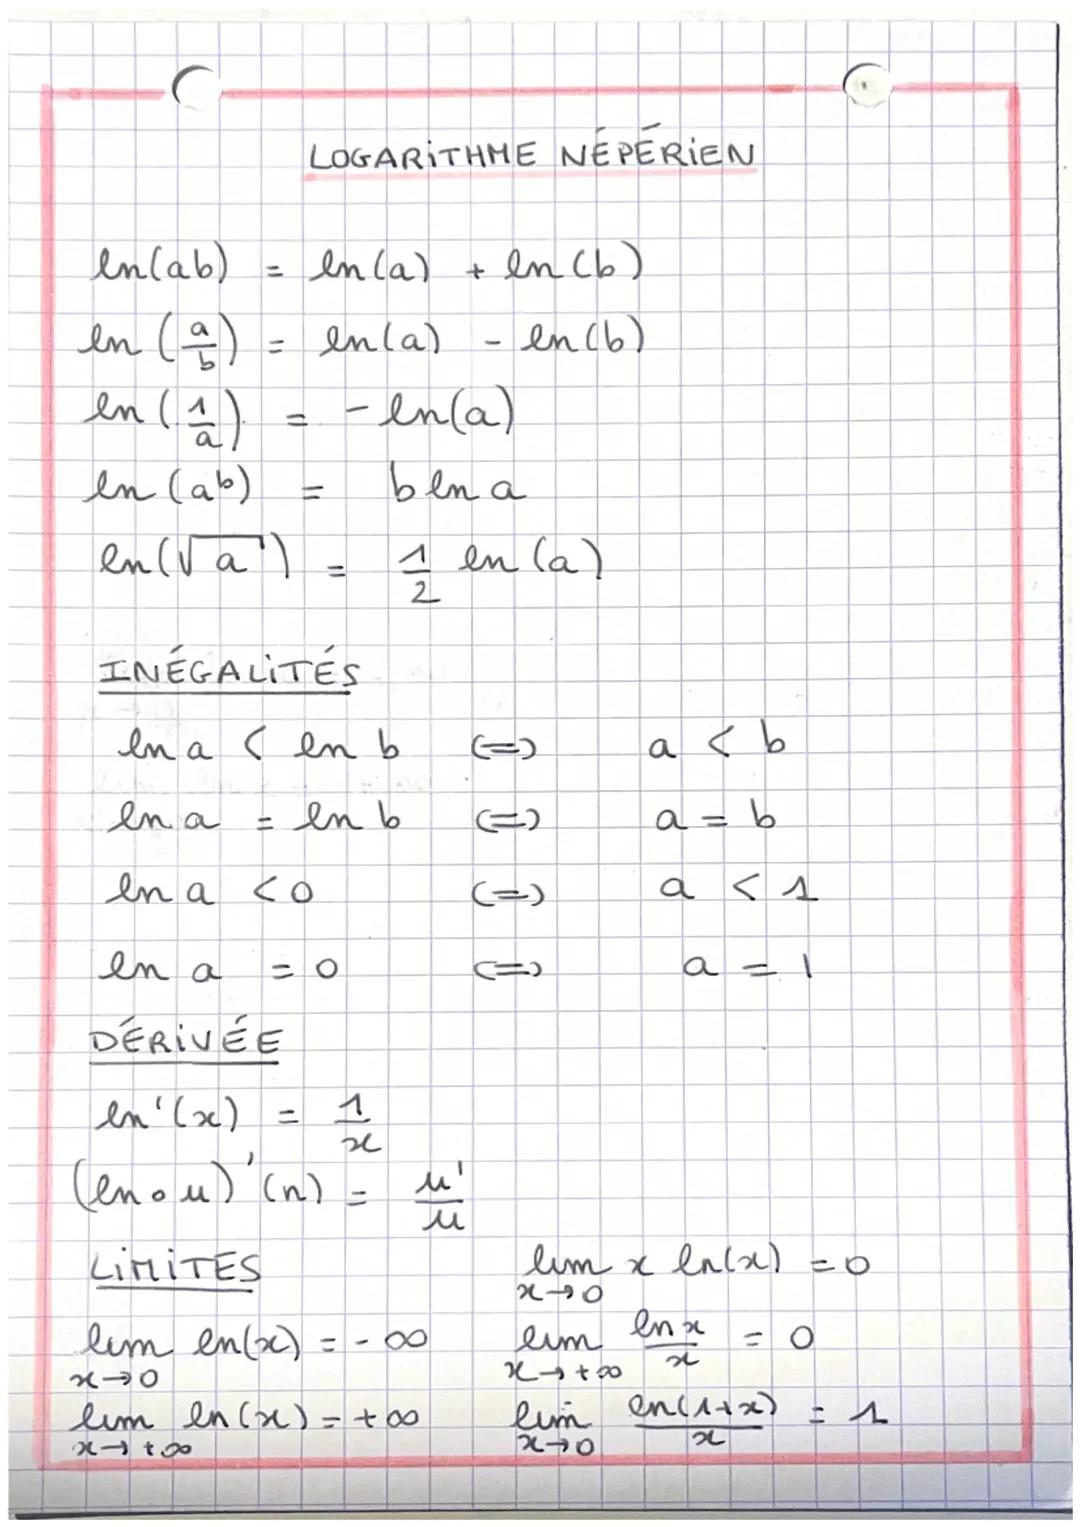 LOGARITHME NÉPÉRIEN
ln(ab) = ln(a) + ln(b)
ln(a/b) = ln(a) - ln(b)
ln(1/a) = -ln(a)
ln(aᵇ) = b ln a
ln(√a) = 1/2 ln(a)
INÉGALITÉS
ln a < ln b (=) a < b
ln a = ln b (=) a = b
ln a < 0 (=) a < 1
ln a = 0 (=) a = 1
DÉRIVÉE
ln'(x) = 1/x
(ln∘u)'(n) = u'/u
LIMITES
lim x→0 ln(x) = -∞
lim x→+∞ ln(x) = +∞
lim x→0 x ln(x) = 0
lim x→+∞ ln x/x = 0
lim x→0 ln(1+x)/x = 1